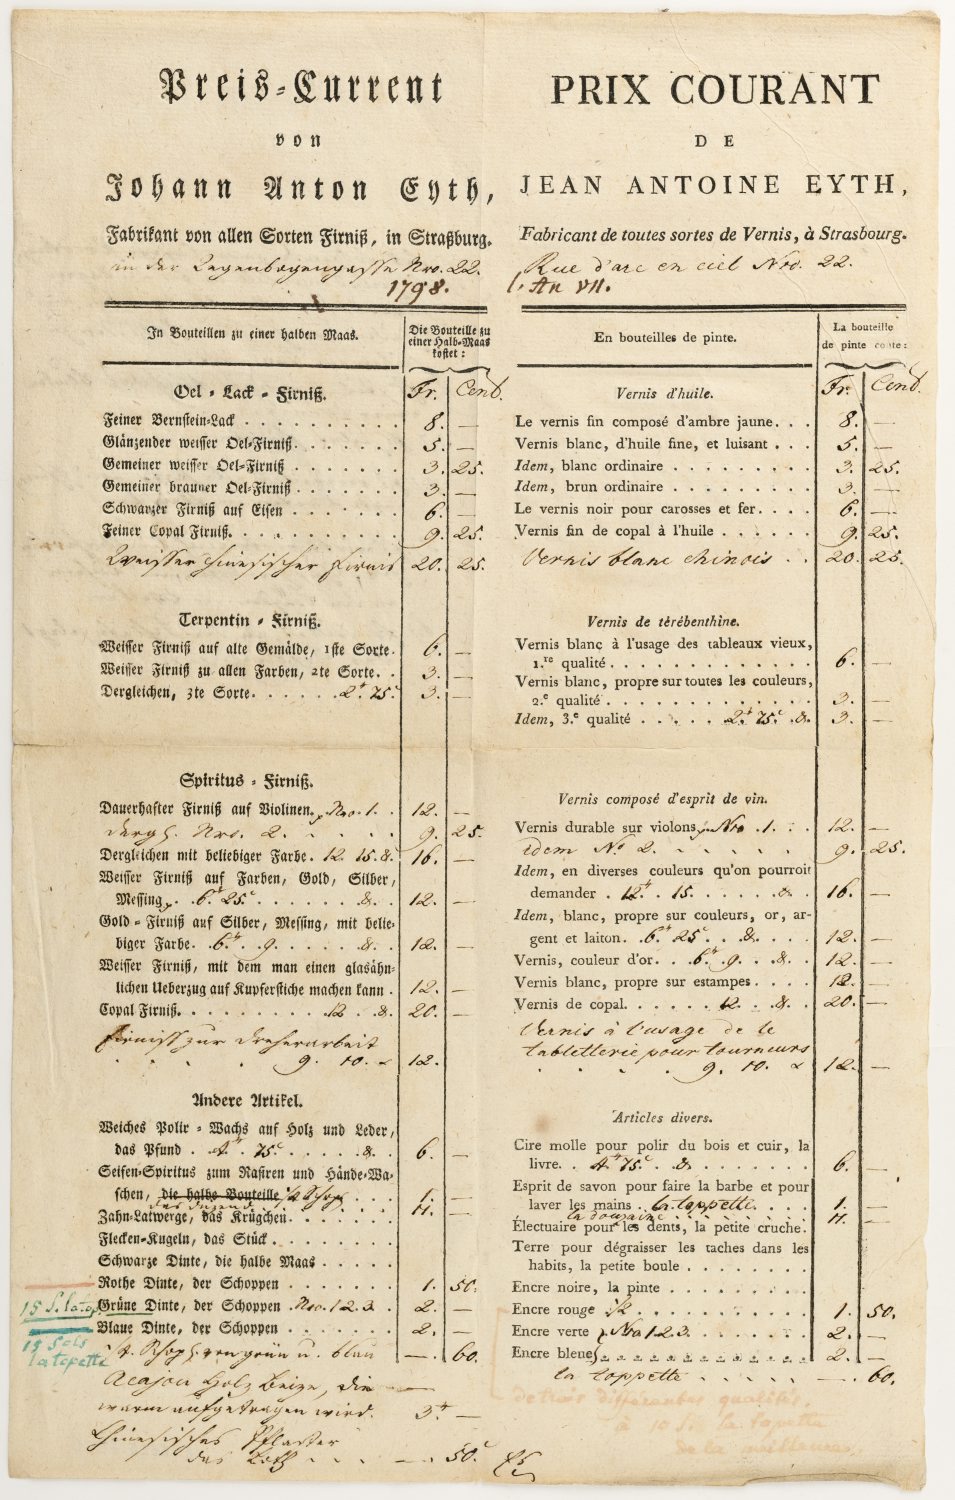 Preis-Current
von
Johann Anton Eyth,
Fabrikant von allen Sorten Firniß, in Straßburg.
in der Regenbogengasse Nro. 22.
1798.
In Bouteillen zu einer halben Maas.
Die Bouteille zu
einer Halb-Maas
kostet:
Oel-Lack-Firniß. Fr. Cent.
Feiner Bernstein-Lack 8. —
Glänzender weisser Oel-Firniß. 5. —
Gemeiner weisser Oel-Firniß 3. 25.
Gemeiner brauner Oel-Firniß 3. —
Schwarzer Firniß auf Eisen 6. —
Feiner Copal Firniß. 9. 25.
Weisser chinesischer Firnis 20. 25.
Terpentin-Firniß.
Weisser Firniß auf alte Gemälde, 1ste Sorte. 6. —
Weisser Firniß zu allen Farben, 2te Sorte. 3. —
Dergleichen, 3te Sorte. 2 75 3. —
Spiritus-Firniß.
Dauerhafter Firniß auf Violinen, Nro. 1. 12. —
Nro. 2. 9. 25.
Dergleichen mit beliebiger Farbe. 12. 15. &. 16. —
Weisser Firniß auf Farben, Gold, Silber,
Messing. 6 25 &. 12. —
Gold-Firniß auf Silber, Messing, mit belie-
biger Farbe. 6 9. &. 12. —
Weisser Firniß, mit dem man einen glasähn-
lichen Ueberzug auf Kupferstiche machen kann. 12. —
Copal Firniß. 12 &. 20. —
Firniss zur Dreherarbeit
9. 10. 12.
Andere Artikel.
Weiches Polir-Wachs auf Holz und Leder,
das Pfund 4 75 &. 6. —
Seifen-Spiritus zum Rasiren und Hände-Wa-
schen, die halbe Bouteille 1. —
Zahn-Latwerge, das Krügchen. 11. —
Flecken-Kugeln, das Stück.
Schwarze Dinte, die halbe Maas
Rothe Dinte, der Schoppen 1. 50.
Grüne Dinte, der Schoppen Nro. 1 2 3. 2. —
Blaue Dinte, der Schoppen 2. —
von grün u. blau —. 60.
Acajou Holz Beize, die —
warm aufgetragen wird. 3 —
Chinesisches Pflaster
das Loth —. 50
15 S. la top.
15 Sols
la topette
PRIX COURANT
DE
JEAN ANTOINE EYTH,
Fabricant de toutes sortes de Vernis, à Strasbourg.
Rue d'arc en ciel Nro. 22.
An VII.
En bouteilles de pinte.
La bouteille
de pinte coute:
Vernis d'huile. Fr. Cent.
Le vernis fin composé d'ambre jaune. 8. —
Vernis blanc, d'huile fine, et luisant 5. —
Idem, blanc ordinaire 3. 25.
Idem, brun ordinaire 3. —
Le vernis noir pour carosses et fer. 6. —
Vernis fin de copal à l'huile 9. 25.
Vernis blanc chinois 20. 25.
Vernis de térébenthine.
Vernis blanc à l'usage des tableaux vieux,
1.re qualité 6. —
Vernis blanc, propre sur toutes les couleurs,
2.e qualité 3. —
Idem, 3.e qualité 2 75 &. 3. —
Vernis composé d'esprit de vin.
Vernis durable sur violons, Nro. 1. 12. —
idem No 2. 9. 25.
Idem, en diverses couleurs qu'on pourroit
demander 12 15. &. 16. —
Idem, blanc, propre sur couleurs, or, ar-
gent et laiton. 6 25 &. 12. —
Vernis, couleur d'or. 6 9. &. 12. —
Vernis blanc, propre sur estampes. 12. —
Vernis de copal. 12. &. 20. —
Vernis à l'usage de le
tabletterie pour tourneurs
9. 10. 12. —
Articles divers.
Cire molle pour polir du bois et cuir, la
livre. 4 75 &. 6. —
Esprit de savon pour faire la barbe et pour
laver les mains la toppette. 1. —
la douzaine
Électuaire pour les dents, la petite cruche. 11. —
Terre pour dégraisser les taches dans les
habits, la petite boule
Encre noire, la pinte
Encre rouge 1. 50.
Encre verte Nro 1 2 3. 2. —
Encre bleue 2. —
la toppette —. 60.
de trois différentes qualités.
à 10 S. la topette
de la meilleure.